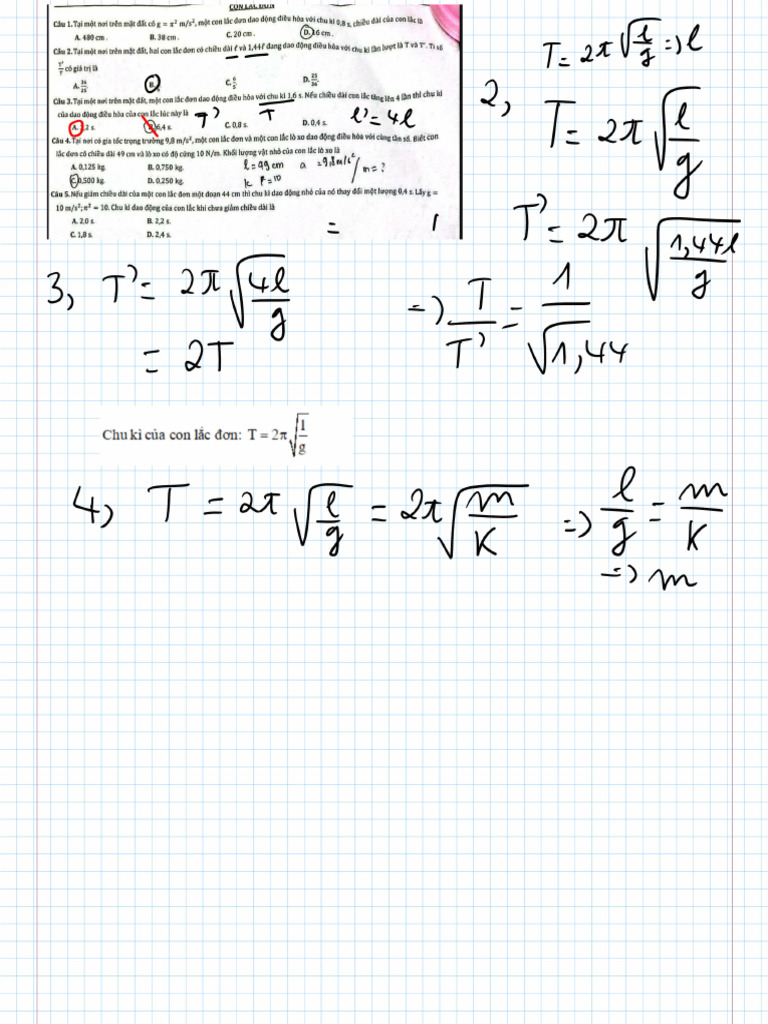 CON LẮC ĐƠN
Câu 1. Tại một nơi trên mặt đất có g = π² m/s², một con lắc đơn dao động điều hòa với chu kì 0,8 s, chiều dài của con lắc là
A. 480 cm. B. 38 cm. C. 20 cm. D. 16 cm.
Câu 2. Tại một nơi trên mặt đất, hai con lắc đơn có chiều dài ℓ và 1,44ℓ đang dao động điều hòa với chu kì lần lượt là T và T'. Tỉ số
T'/T có giá trị là
A. 36/25 B. C. 6/5 D. 25/36.
Câu 3. Tại một nơi trên mặt đất, một con lắc đơn dao động điều hòa với chu kì 1,6 s. Nếu chiều dài con lắc tăng lên 4 lần thì chu kì
của dao động điều hòa của con lắc lúc này là T' T l' = 4l
A. 3,2 s. B. 6,4 s. C. 0,8 s. D. 0,4 s.
Câu 4. Tại nơi có gia tốc trọng trường 9,8 m/s², một con lắc đơn và một con lắc lò xo dao động điều hòa với cùng tần số. Biết con
lắc đơn có chiều dài 49 cm và lò xo có độ cứng 10 N/m. Khối lượng vật nhỏ của con lắc lò xo là
A. 0,125 kg. B. 0,750 kg. l = 49 cm a = 9,8 m/s² / m = ?
C. 0,500 kg. D. 0,250 kg. k = 10
Câu 5. Nếu giảm chiều dài của một con lắc đơn một đoạn 44 cm thì chu kì dao động nhỏ của nó thay đổi một lượng 0,4 s. Lấy g =
10 m/s²; π² = 10. Chu kì dao động của con lắc khi chưa giảm chiều dài là
A. 2,0 s. B. 2,2 s. = 1
C. 1,8 s. D. 2,4 s.
T = 2π√(l/g) => l
2, T = 2π√(l/g)
T' = 2π√(1,44l/g)
=> T/T' = 1/√1,44
3, T' = 2π√(4l/g)
= 2T
Chu kì của con lắc đơn: T = 2π√(l/g)
4, T = 2π√(l/g) = 2π√(m/K) => l/g = m/K
=> m